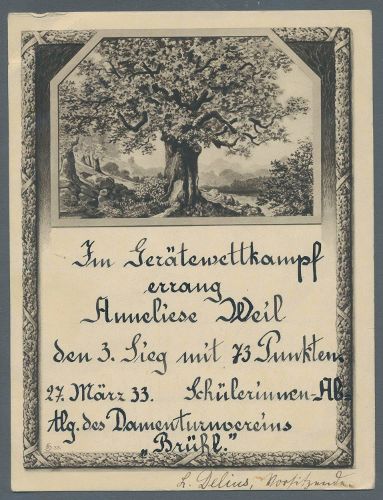 Im Gerätewettkampf
errang
Anneliese Weil
den 3. Sieg mit 73 Punkten.
27. März 33. Schülerinnen-Ab-
tlg. des Damenturnvereins
„Brühl."
L. Delius, Vorsitzende.